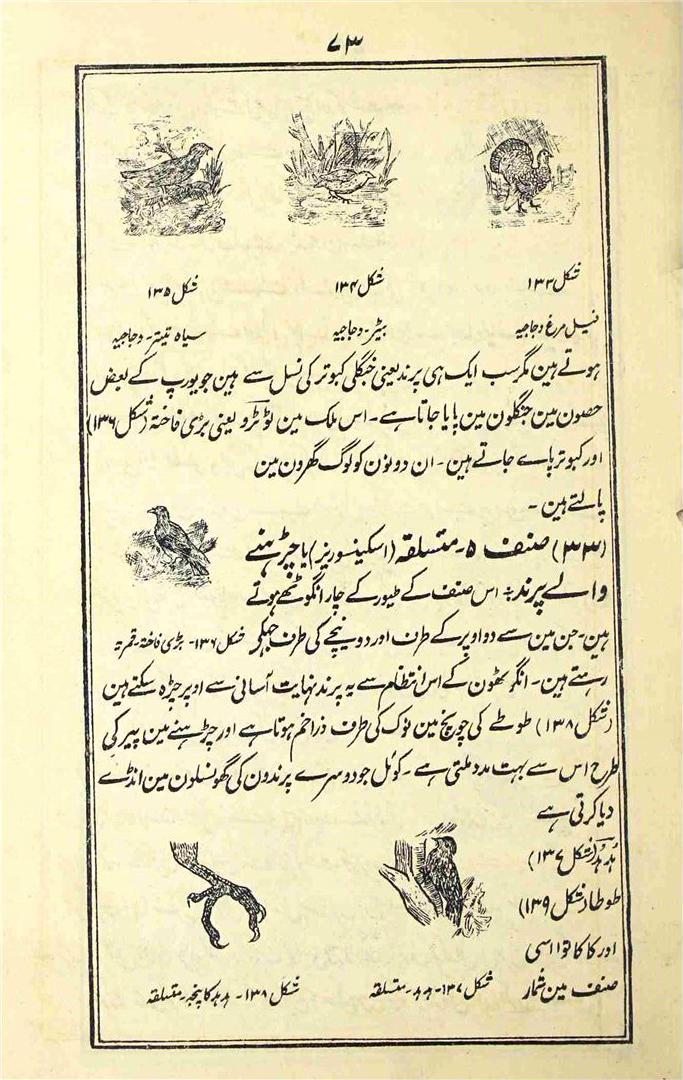 ۷۳
شکل ۱۳۳ شکل ۱۳۴ شکل ۱۳۵
فیل مرغ دجاجیہ بٹیر - دجاجیہ سیاہ تیتر - دجاجیہ
ہوتے ہین مگر سب ایک ہی پرند یعنی جنگلی کبوتر کی نسل سے ہین جو یورپ کے بعض
حصون مین جنگلون مین پایا جاتا ہے ۔ اس ملک مین ٹوٹرو یعنی بڑی فاختہ (شکل ۱۳۶)
اور کبوتر پاے جاتے ہین ۔ ان دونون کو لوگ گھرون مین
پالتے ہین ۔
(۳۳) صنف ۵ - متسلقہ (اسکینسوریز) یا چڑہنے
والے پرند : اس صنف کے طیور کے چار انگوٹھے ہوتے
ہین - جن مین سے دو اوپر کے طرف اور دو نیچے کی طرف جھکے
شکل ۱۳۶ - بڑی فاختہ - قمریہ
رہتے ہین - انگوٹھون کے اس انتظام سے یہ پرند نہایت آسانی سے اوپر چڑہ سکتے ہین
(شکل ۱۳۸) طوطے کی چونچ مین نوک کی طرف ذرا خم ہوتا ہے اور چڑہنے مین پیر کی
طرح اس سے بہت مدد ملتی ہے ۔ کوئل جو دوسرے پرندون کی گھونسلون مین انڈے
دیا کرتی ہے
ہُدہُد (شکل ۱۳۷)
طوطا (شکل ۱۳۹)
اور کاکاتوا اسی
صنف مین شمار
شکل ۱۳۷ - ہدہد - متسلقہ شکل ۱۳۸ - ہدہد کا پنجہ - متسلقہ